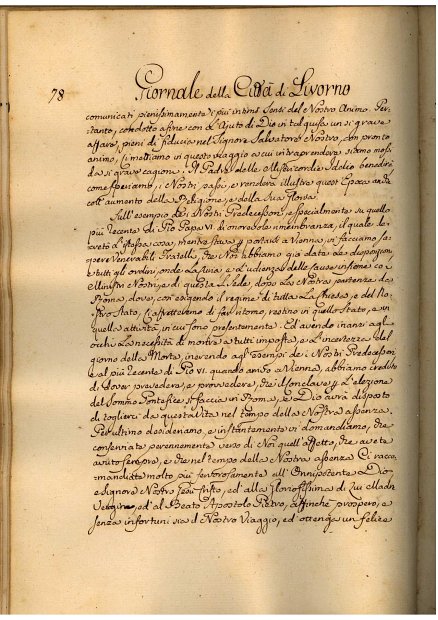 78 Giornale della Città di Livorno
comunicati pienissimamente i più intimi sensi del Nostro Animo. Per-
tanto, condotto a fine con l'Ajuto di Dio in tal guisa un sì grave
affare, pieni di fiducia nel Signore Salvatore Nostro, con pronto
animo, ci mettiamo in questo viaggio a cui intraprendere siamo mossi
da sì grave cagione. Il Padre delle Misericordie Iddio benedirà
come speriamo, i Nostri passi, e renderà illustre quest'Epoca
coll'aumento della Religione, e della Sua gloria.
Sull'esempio de' Nostri Predecessori, e specialmente su quello
più recente di Pio Papa VI di onorevole rimembranza, il quale de-
cretò l'istessa cosa, mentre stava per portarsi a Vienna, vi facciamo sa-
pere Venerabili Fratelli, che Noi abbiamo già date le disposizioni
e tutti gli ordini, onde la Curia, e l'udienza delle cause insieme co'
Ministri Nostri, e di questa S. Sede, dopo la Nostra partenza da
Roma, dove, con esigendo il regime di tutta la Chiesa, e del No-
stro Stato, ci affretteremo di far ritorno, restino in quello stato, e in
quella attività, in cui sono presentemente. Ed avendo inanzi agl'
occhi la necessità di morire a tutti imposta, e l'incertezza del
giorno della Morte, inerendo agl'esempi de' Nostri Predecessori
e al più recente di Pio VI. quando andò a Vienna, abbiamo creduto
di dover prevedere, e provvedere, che il Conclave, e l'elezione
del Sommo Pontefice si faccia in Roma, se Dio avrà disposto
di toglierci da questa Vita nel tempo della Nostra assenza.
Per ultimo desideriamo, e instantemente vi domandiamo, che
conserviate perennemente verso di Noi quell'affetto, che avete
avuto sempre, e che nel tempo della Nostra assenza Ci racco-
mandiate molto più fervorosamente all'Onnipotente Dio
e Signore Nostro Gesù Cristo, ed alla Gloriosissima di Lui Madre
Vergine, ed al Beato Apostolo Pietro, affinchè prospero, e
senza infortuni sia il Nostro Viaggio, ed ottenga un felice